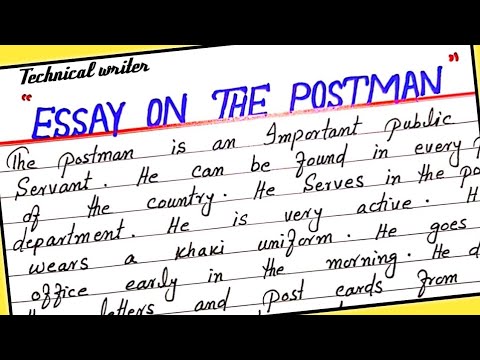 Technical writer
"ESSAY ON THE POSTMAN"
The postman is an Important public
Servant. He can be found in every
of the country. He Serves in the
department. He is very active.
wears a khaki uniform. He goes
office early in the morning. He
letters and post cards from